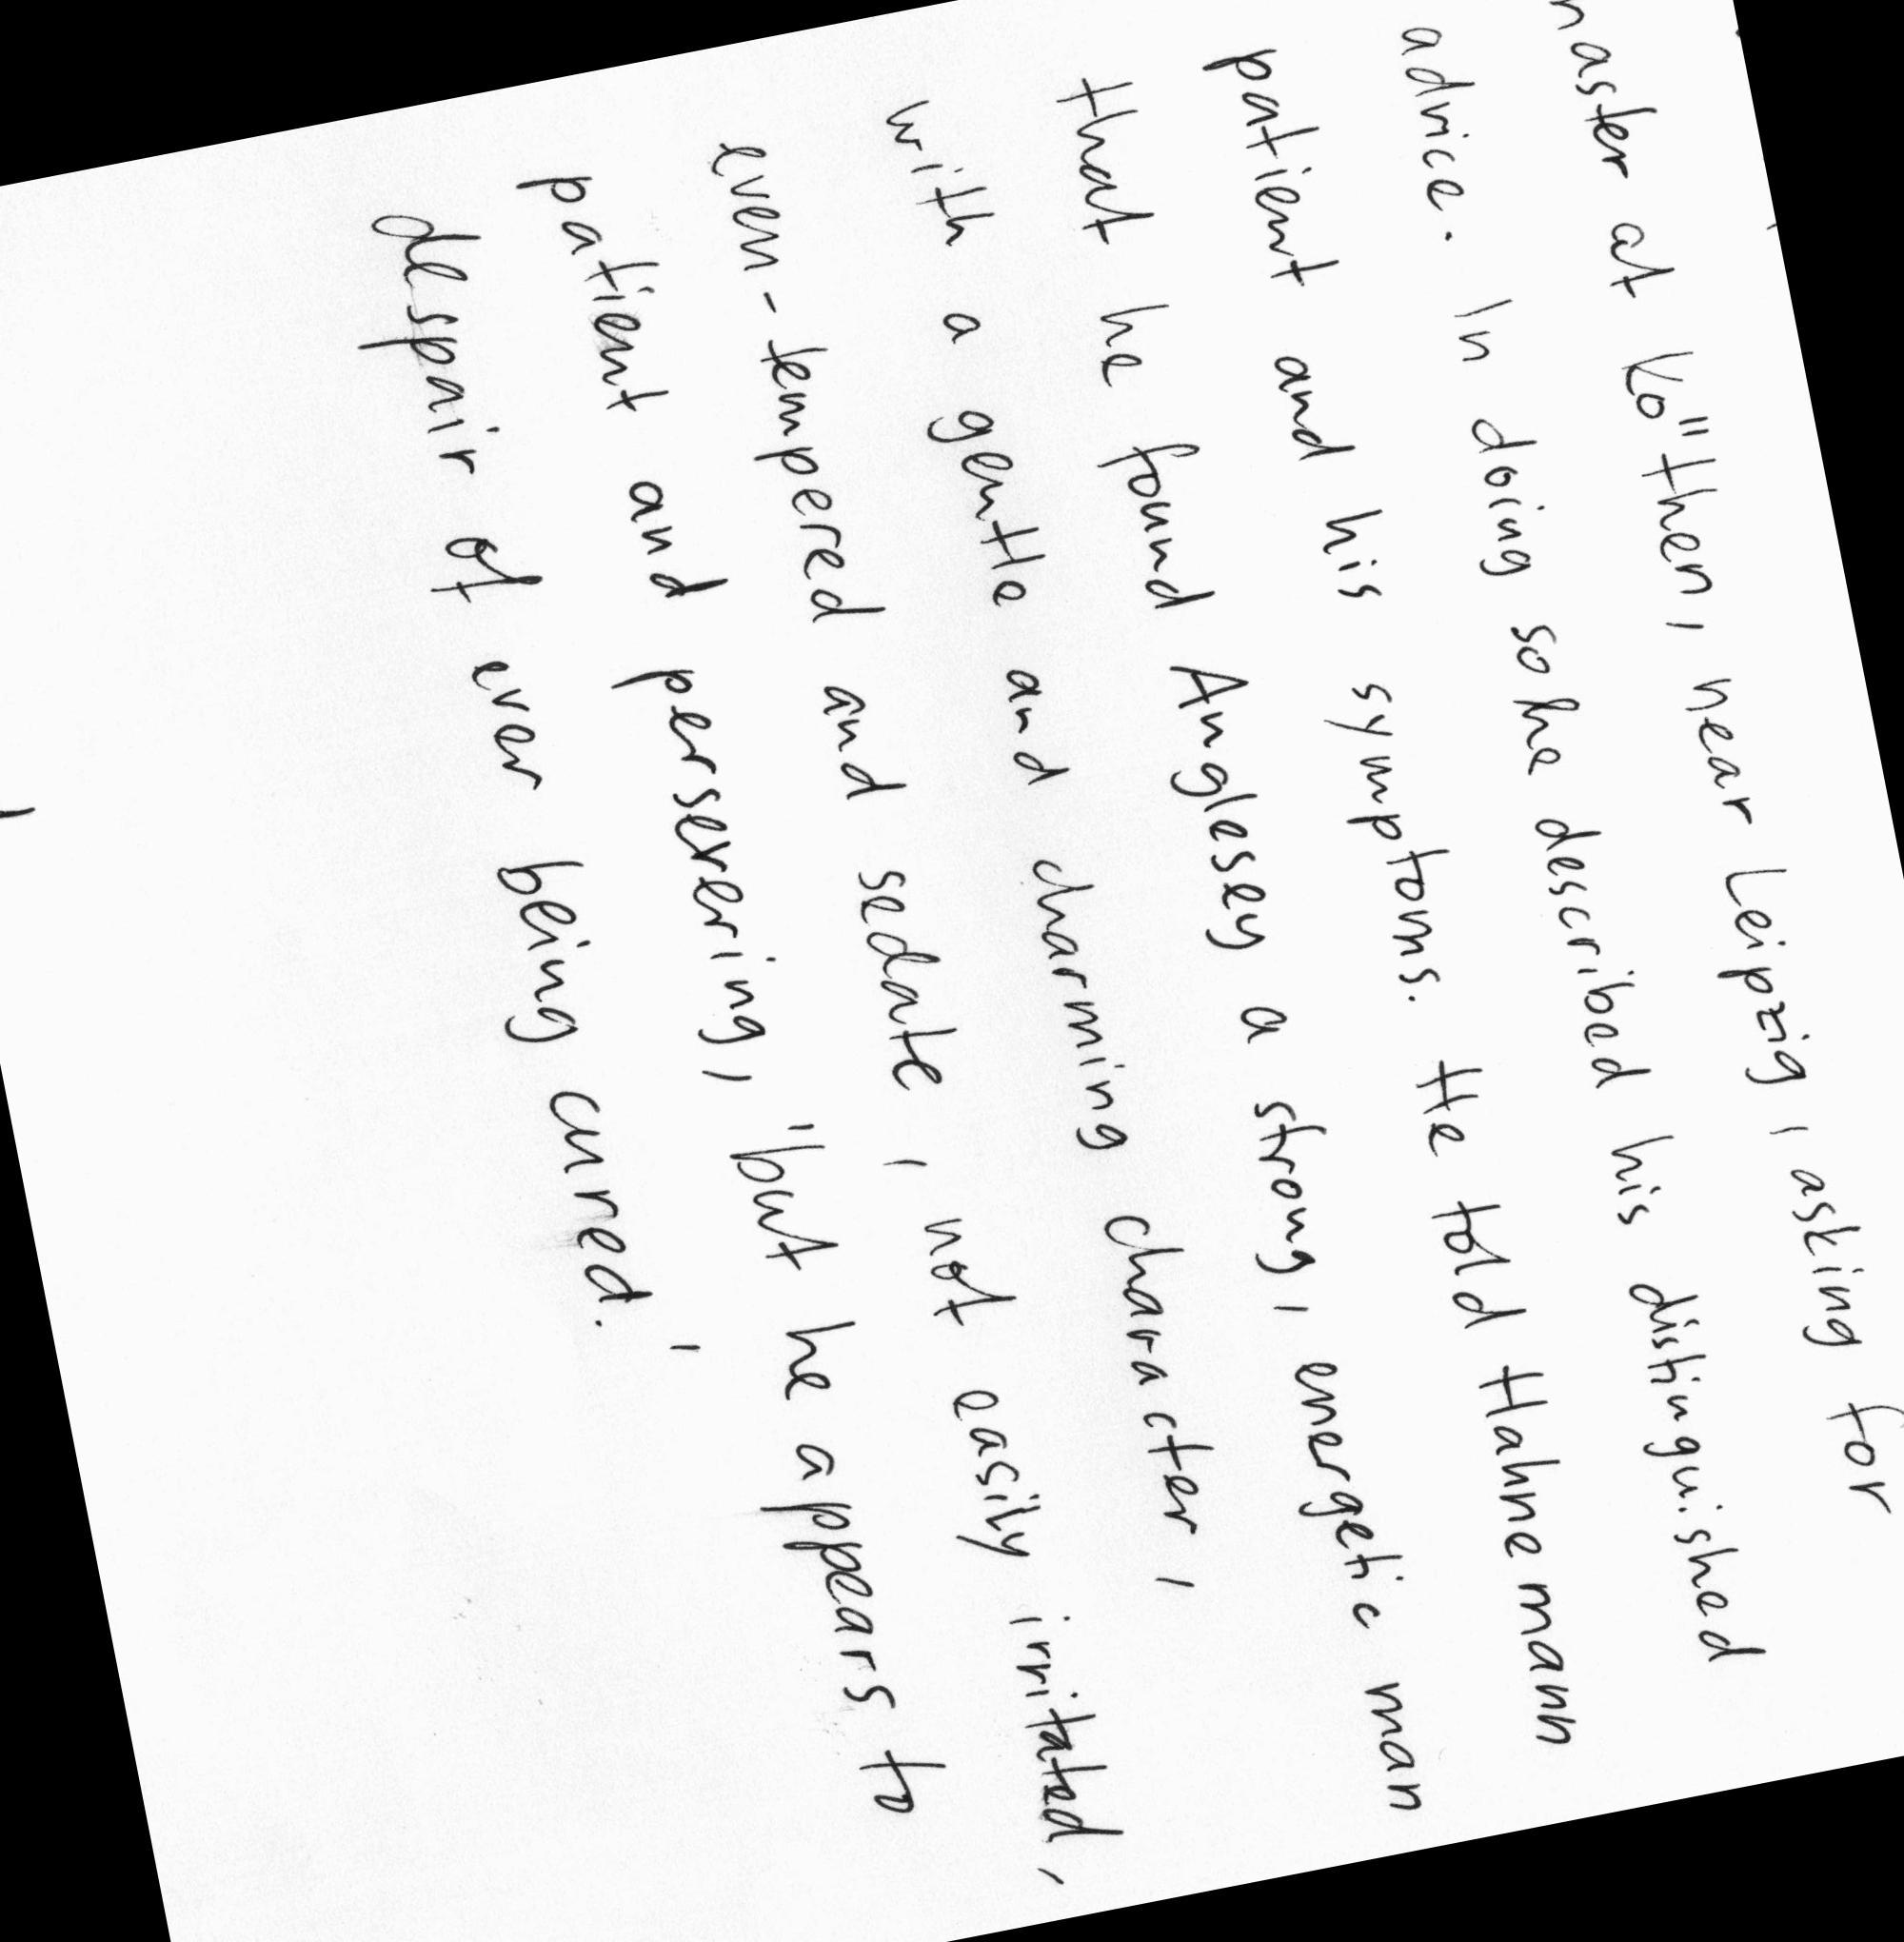 master at Ko"then, near Leipzig, asking for
advice. In doing so he described his distinguished
patient and his symptoms. He told Hahnemann
that he found Anglesey a strong, energetic man
with a gentle and charming character,
even-tempered and sedate, not easily irritated,
patient and persevering, "but he appears to
despair of ever being cured.'